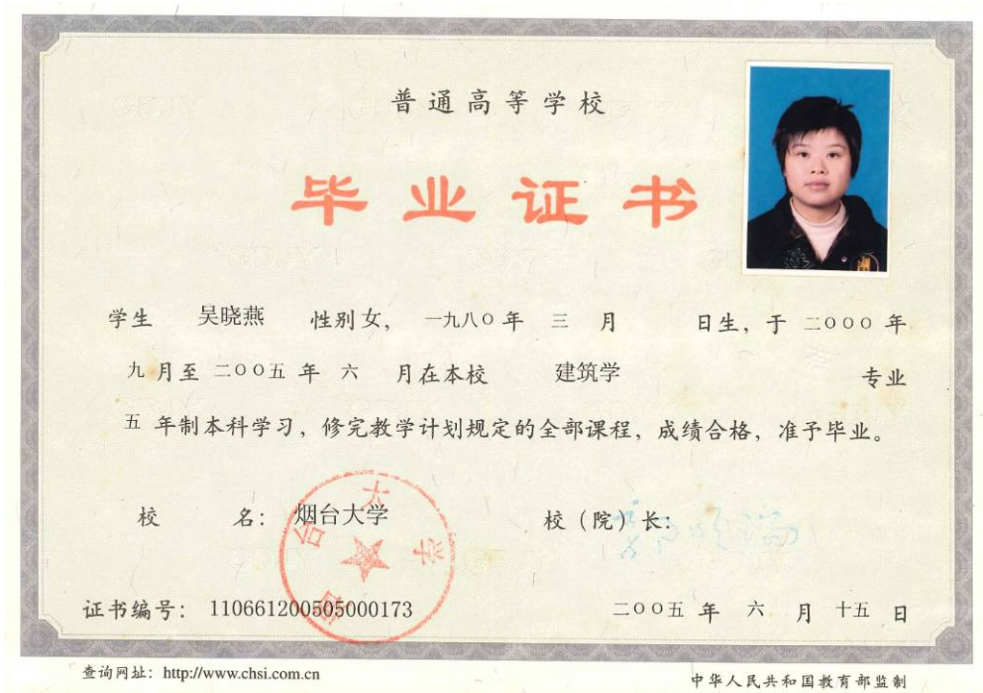 普通高等学校
毕业证书
学生 吴晓燕 性别女，一九八〇年 三 月 日生，于 二〇〇〇 年
九 月至 二〇〇五 年 六 月在本校 建筑学 专业
五 年制本科学习，修完教学计划规定的全部课程，成绩合格，准予毕业。
校 名：烟台大学 校（院）长：
烟台大学
证书编号：110661200505000173 二〇〇五 年 六 月 十五 日
查询网址：http://www.chsi.com.cn 中华人民共和国教育部监制